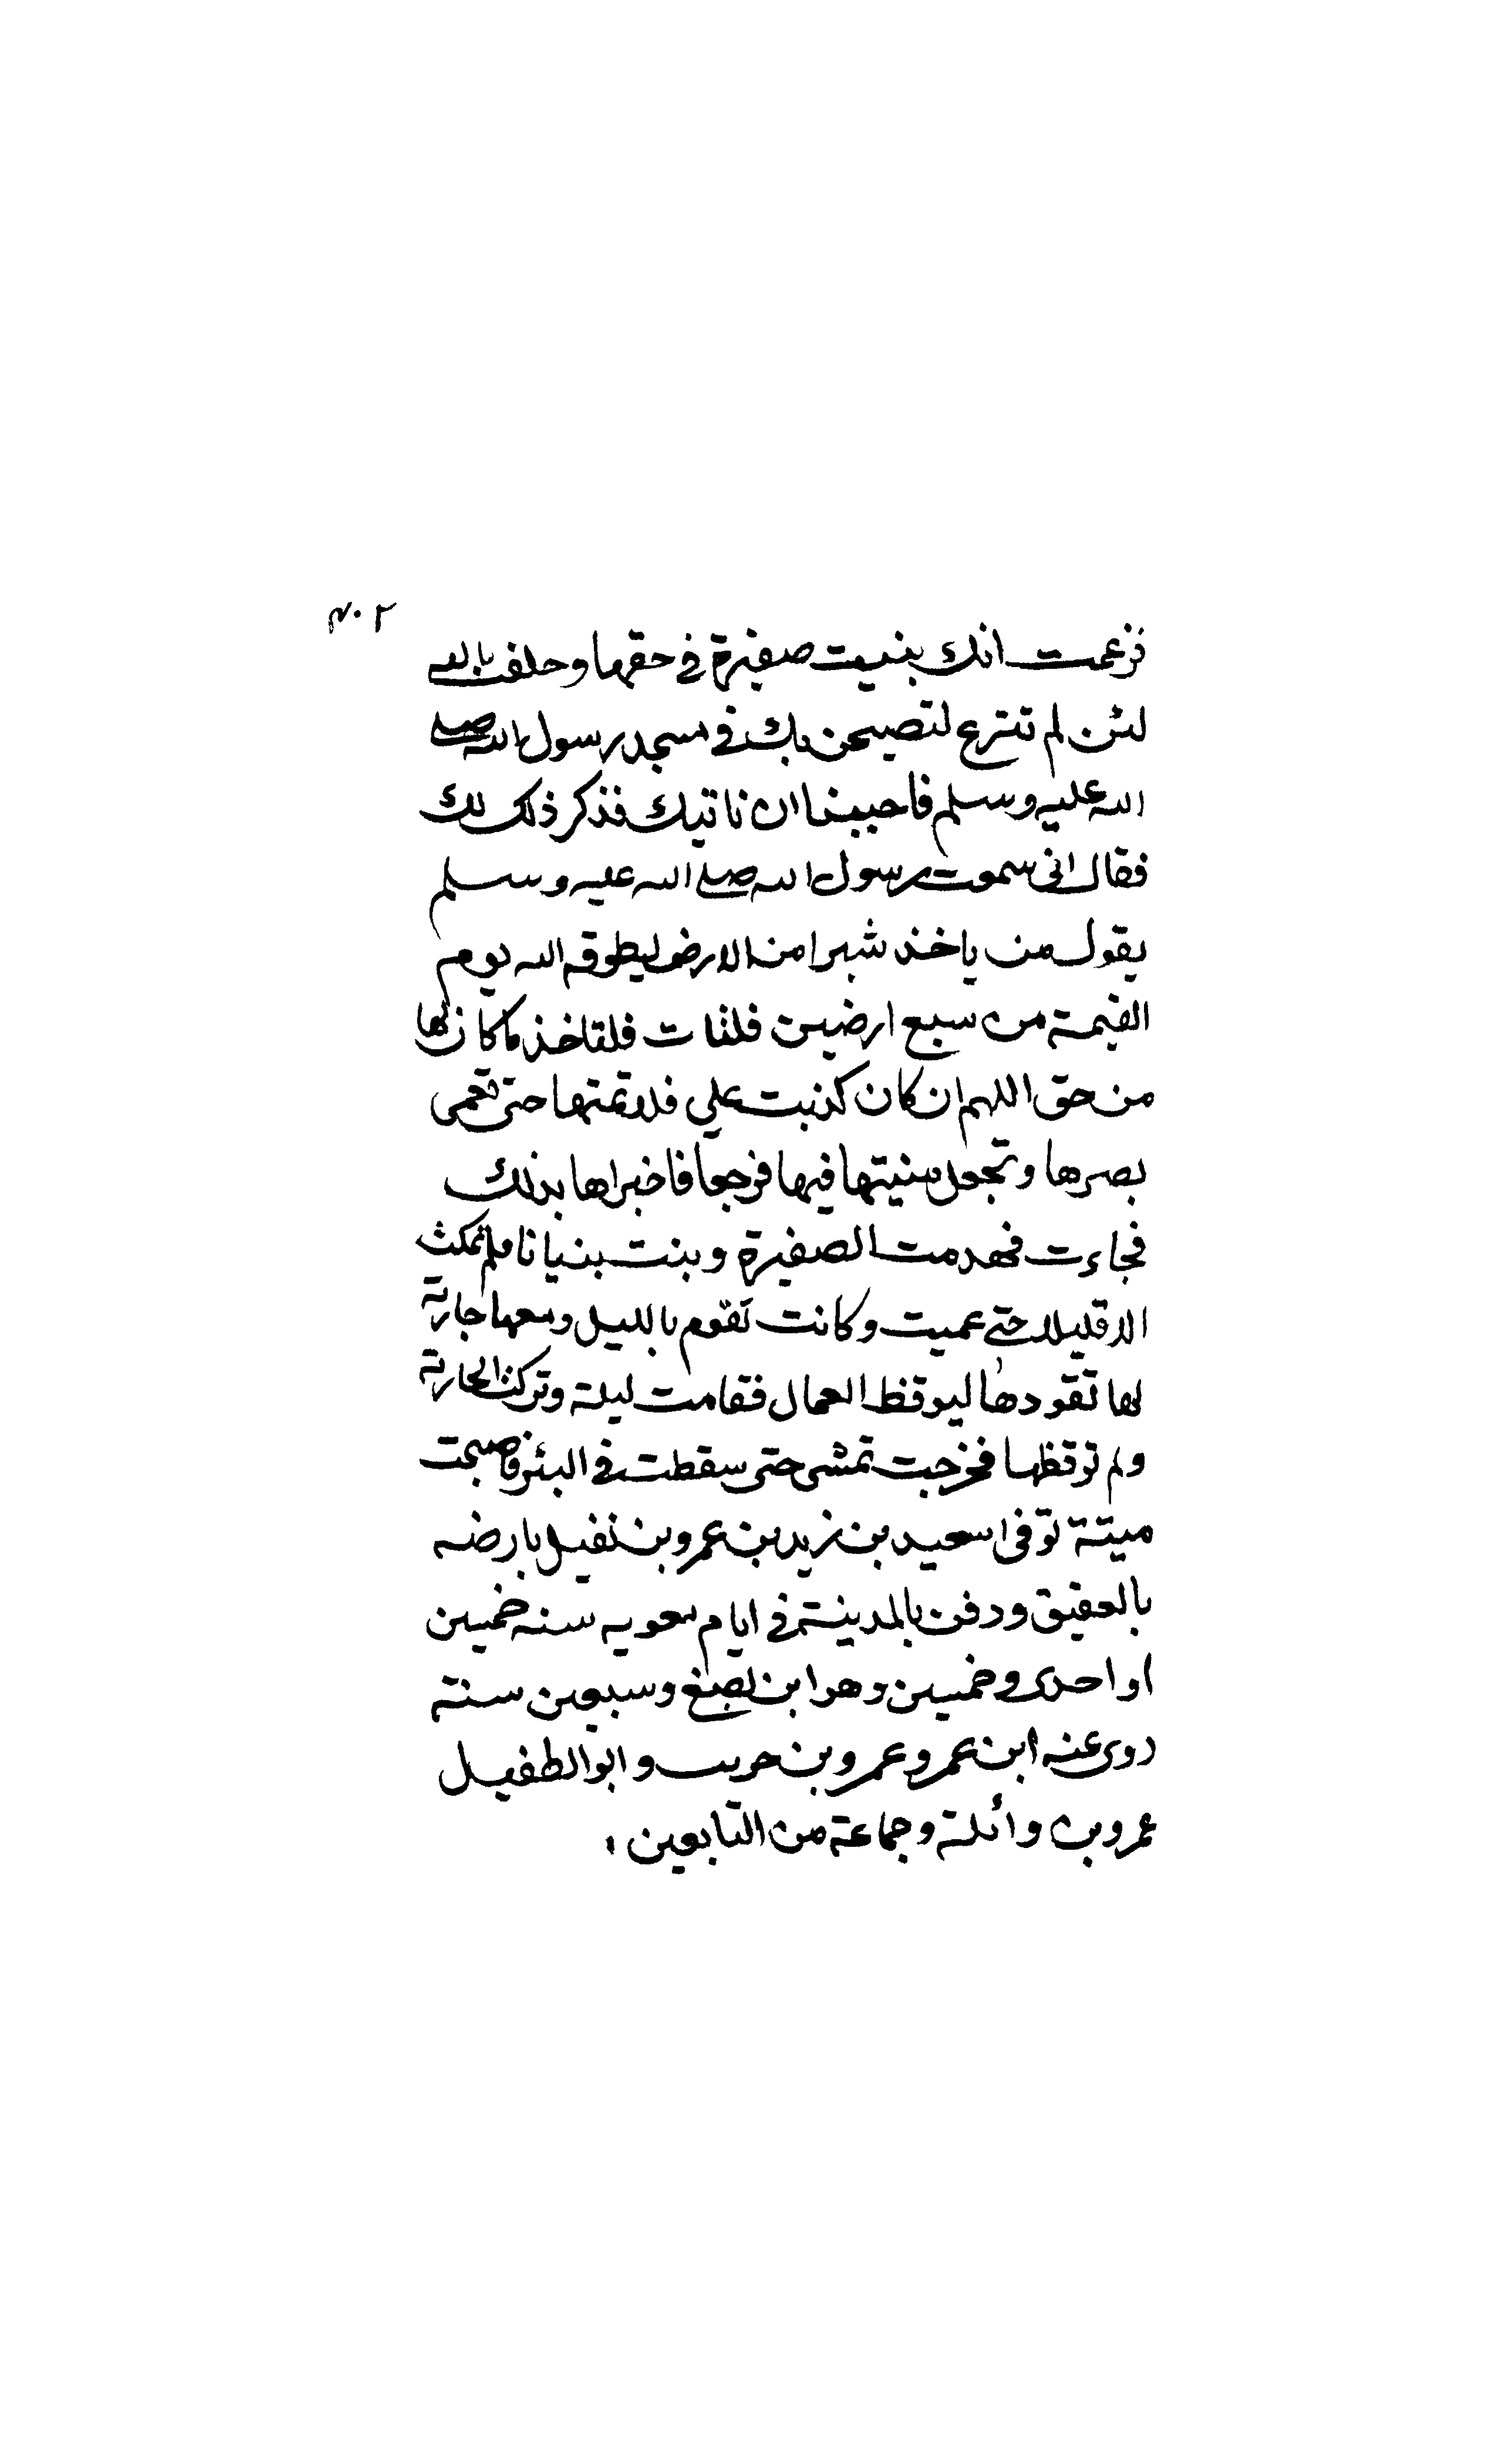 ٢٠٣
تزعمت انك بنيت صفيرة في حقها وحلفت بالله
لئن لم تنزع لتصيحن بك في مسجد رسول الله صلى
الله عليه وسلم فاحببنا ان ناتيك فنذكر ذلك لك
فقال اني سمعت رسول الله صلى الله عليه وسلم
يقول من ياخذ شبرا من الارض ليطوقه الله يوم
القيمة من سبع ارضين فلتات فلتاخذ ما كان لها
من حق اللهم ان كان كذبت علي فلا تمتها حتى تعمى
بصرها وتجعل منيتها فيها فرجعا فاخبراها بذلك
فجاءت فهدمت الصفيرة وبنت بنيانا فلم تمكث
الا قليلا حتى عميت وكانت تقوم بالليل ومعها جارية
لها تقودها ليوقظ العمال فقامت ليلة وتركت الجارية
ولم توقظها فخرجت تمشي حتى سقطت في البئر فاصبحت
ميتة توفى سعيد بن زيد بن عمرو بن نفيل بارضه
بالعقيق ودفن بالمدينة في ايام معويه سنه خمسين
او احدى وخمسين وهو ابن بضع وسبعين سنة
روى عنه ابن عمر وعمرو بن حريث وابو الطفيل
عمرو بن واثلة وجماعة من التابعين